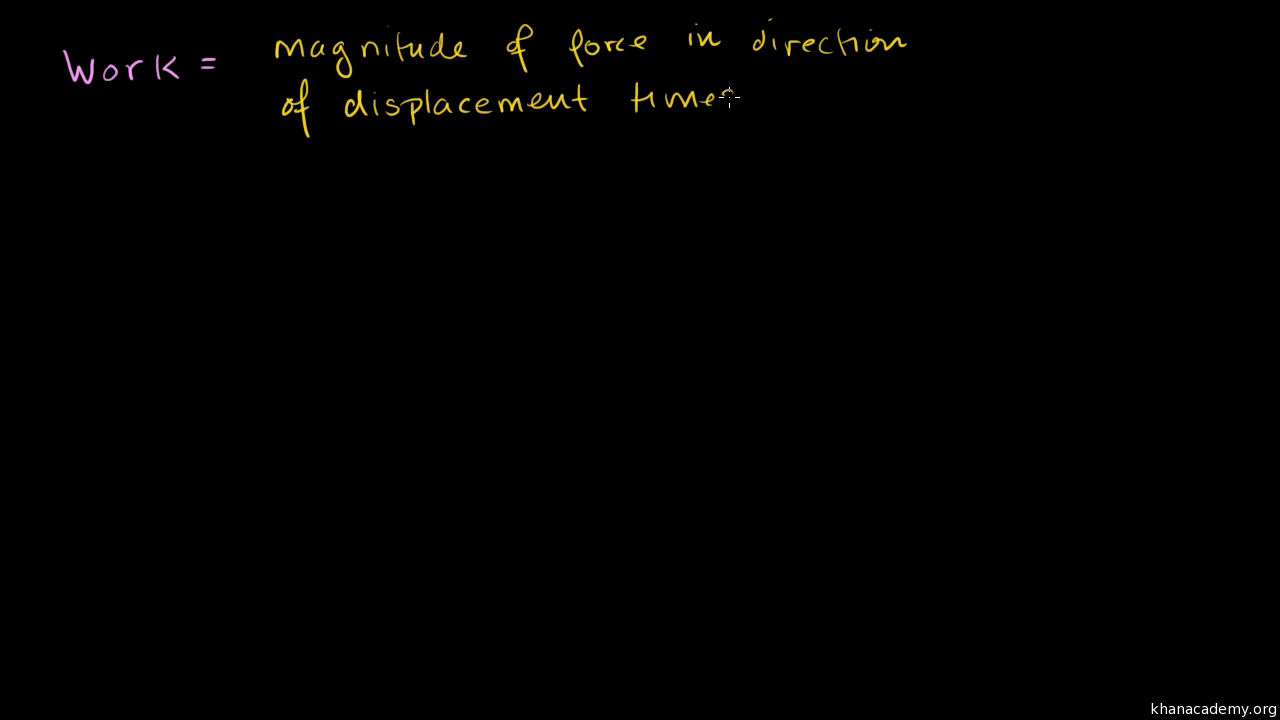 Work = magnitude of force in direction
of displacement times
khanacademy.org